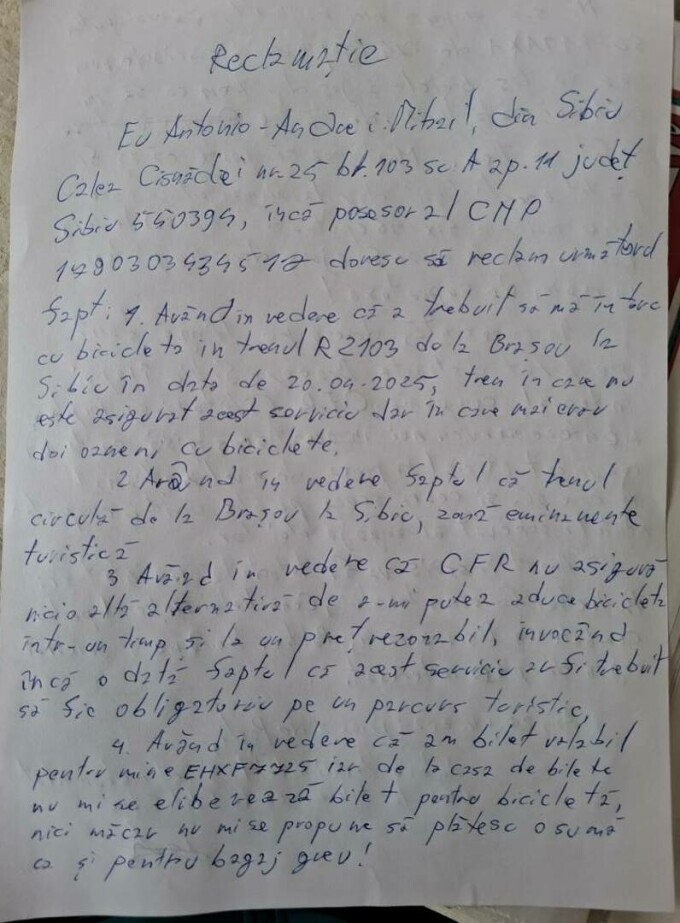 Reclamație
Eu Antonio-Andrei Mihail, din Sibiu
Calea Cisnădiei nr. 25 bl. 103 sc. A ap. 11 județ
Sibiu 550394, încă posesor al CNP
doresc să reclam următorul
fapt: 1. Având în vedere că a trebuit să mă întorc
cu bicicleta in trenul R 2103 de la Brașov la
Sibiu în data de 20.04.2025, tren in care nu
este asigurat acest serviciu dar în care mai erau
doi oameni cu biciclete.
2 Având în vedere faptul că trenul
circulă de la Brașov la Sibiu, zonă eminamente
turistică
3 Având in vedere că CFR nu asigură
nicio altă alternativă de a-mi putea aduce bicicleta
într-un timp și la un preț rezonabil, invocând
încă o dată faptul că acest serviciu ar fi trebuit
să fie obligatoriu pe un parcurs turistic,
4. Având în vedere că am bilet valabil
pentru mine EHXF7725 iar de la casa de bilete
nu mi se eliberează bilet pentru bicicletă,
nici măcar nu mi se propune să plătesc o sumă
ca și pentru bagaj greu!